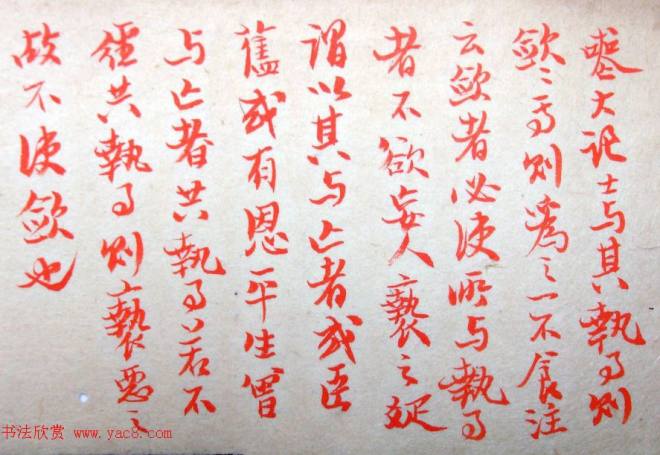 喪大记士与其執事则
歛〻焉则為之一不食注
云歛者必使所与執事
者不欲妄人褻之疏
謂以其与亡者或臣
舊或有恩平生曾
与亡者共執事若不
經共執事则褻惡之
故不使歛也
书法欣赏 www.yac8.com